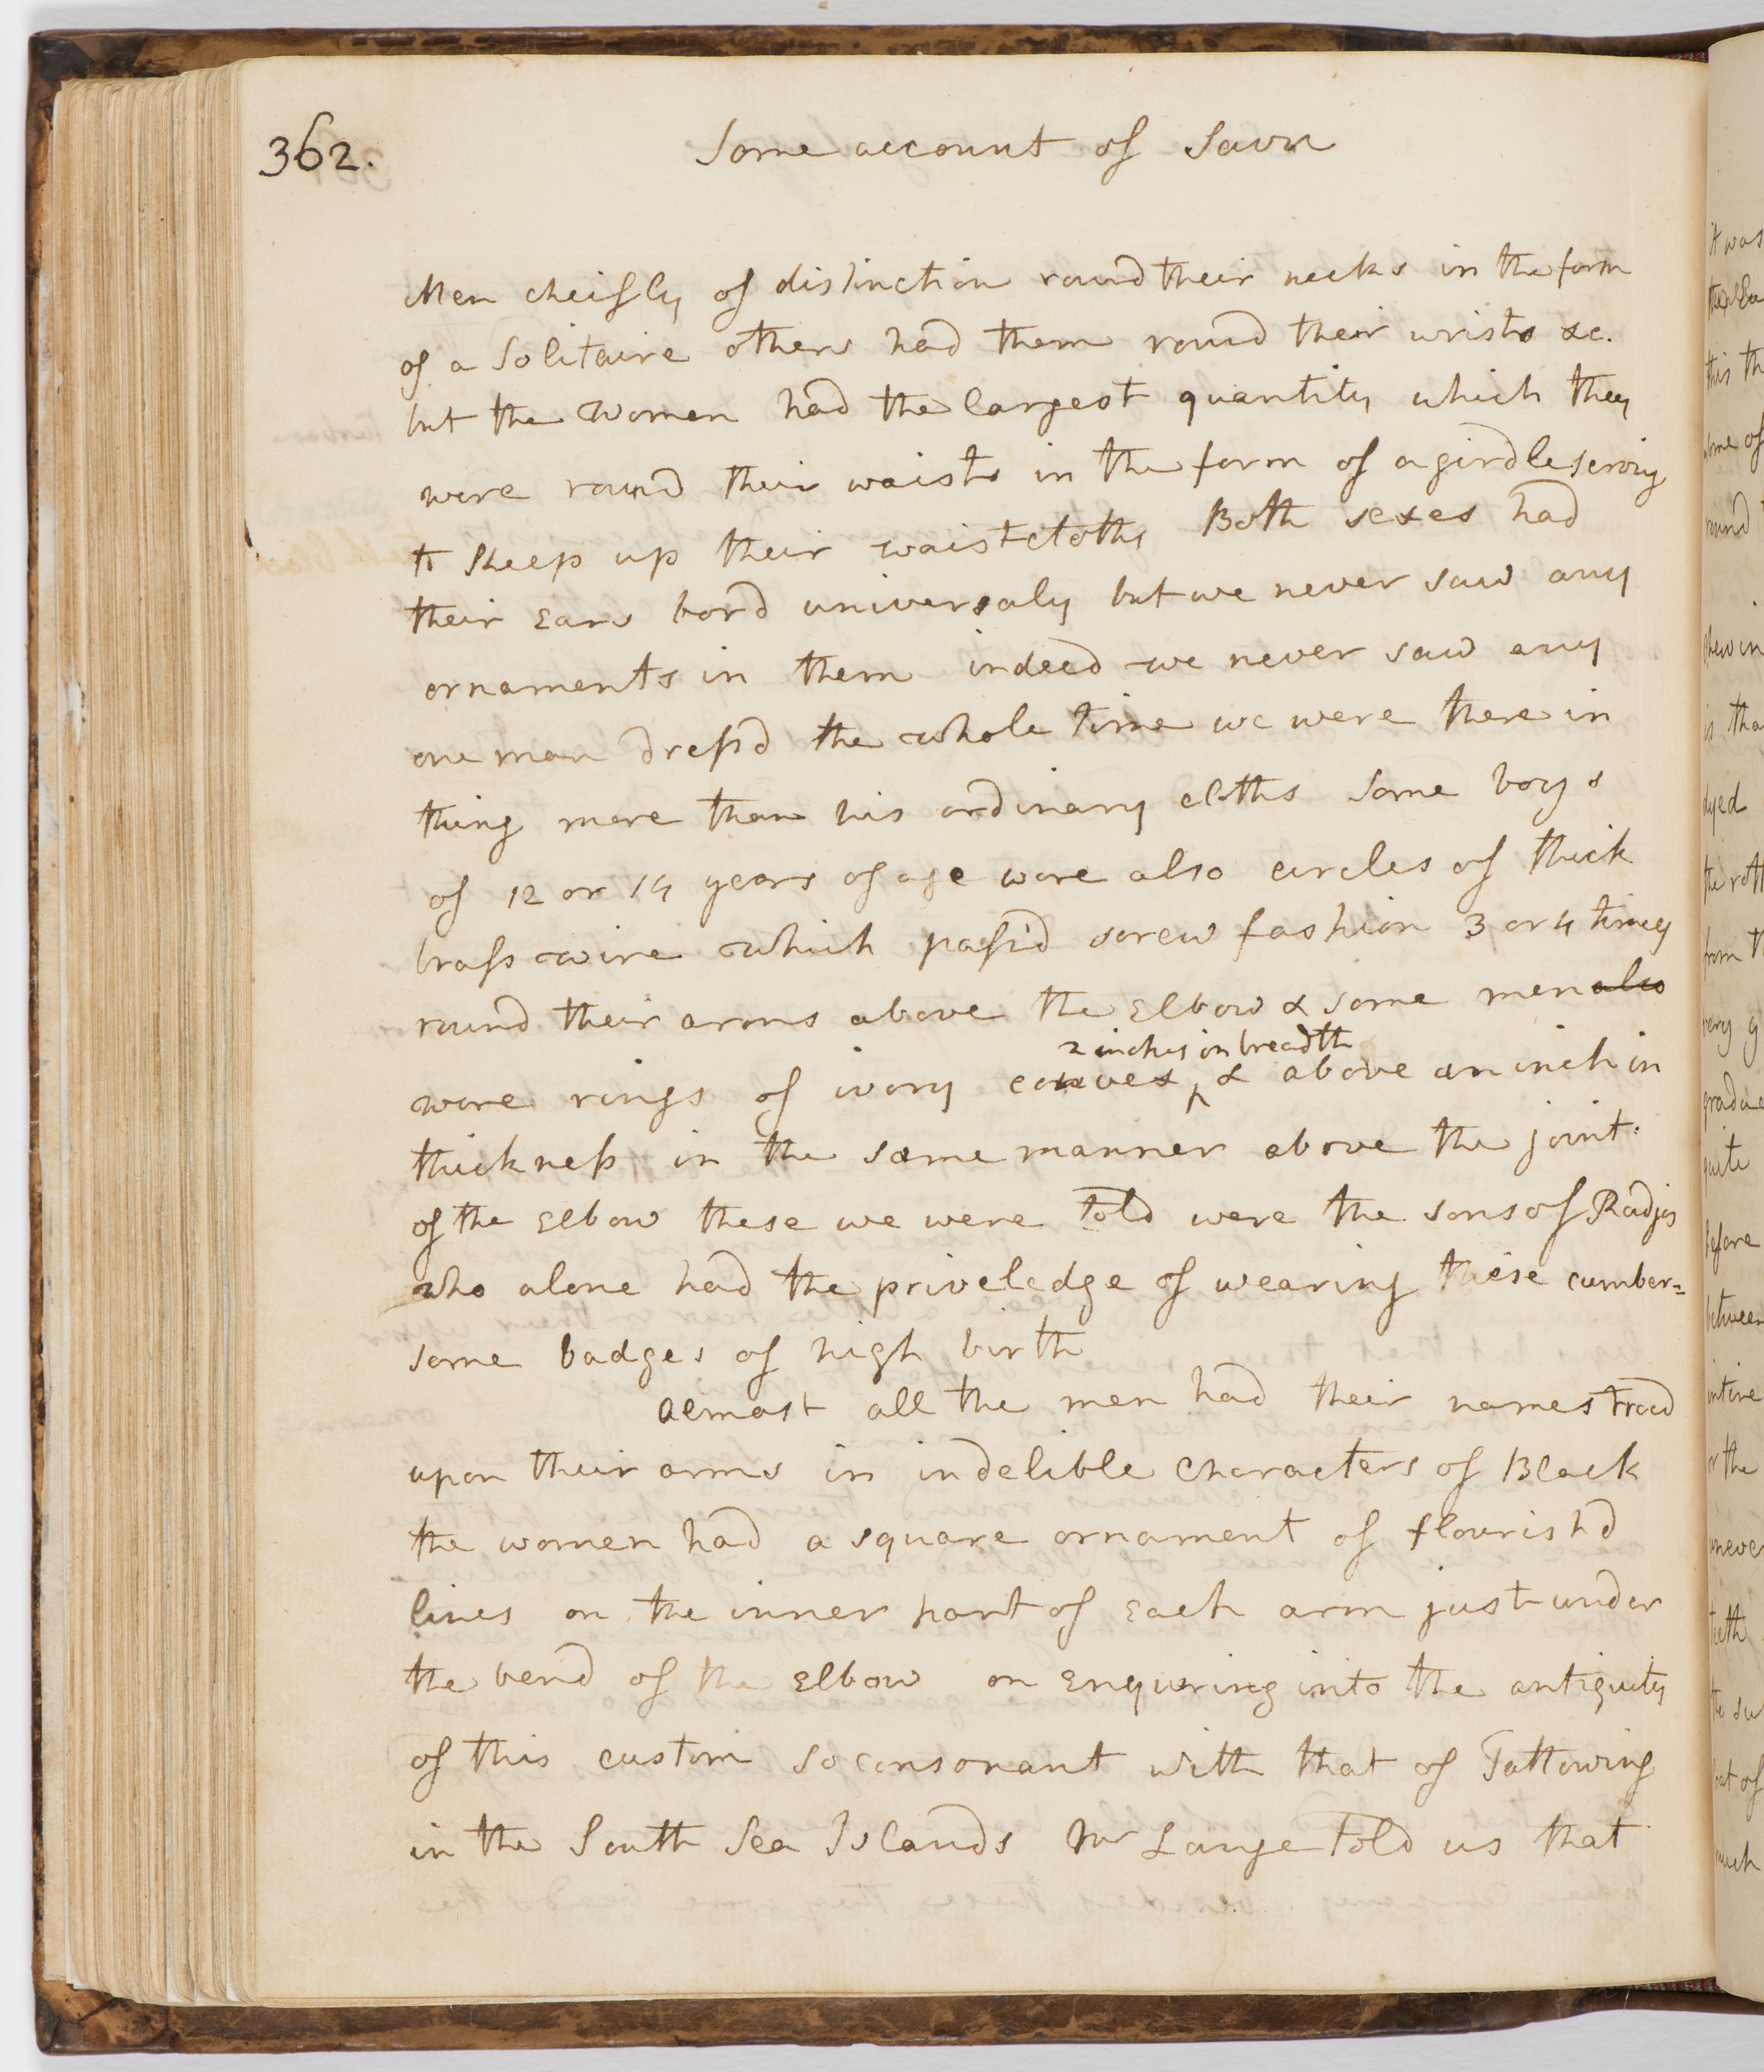 362.
Some account of Savu
Men cheifly of distinction round their necks in the form
of a Solitaire others had them round their wrists &c.
but the women had the largest quantity which they
wore round their waists in the form of a girdle serving
to keep up their waistcloths Both sexes had
their Ears bord universaly but we never saw any
ornaments in them indeed we never saw any
one man dressd the whole time we were there in
thing more than his ordinary cloths some boys
of 12 or 14 years of age wore also circles of thick
brass wire which pass'd screw fashion 3 or 4 times
round their arms above the Elbow & some men also
wore rings of ivory convex
2 inches in breadth
& above an inch in
thickness in the same manner above the joint
of the Elbow these we were told were the sons of Radjas
who alone had the priveledge of wearing these cumber=
some badges of high birth
Almost all the men had their names tracd
upon their arms in indelible characters of Black
the women had a square ornament of flourishd
lines on the inner part of Each arm just under
the bend of the Elbow on Enquiring into the antiquity
of this custom so consonant with that of Tattowing
in the South Sea Islands Mr Lange told us that
it was
this th
some of
round
chew in
is tha
dyed
from th
very g
quite
before
between
intire
or the
uneve
teeth
the su
that of
much